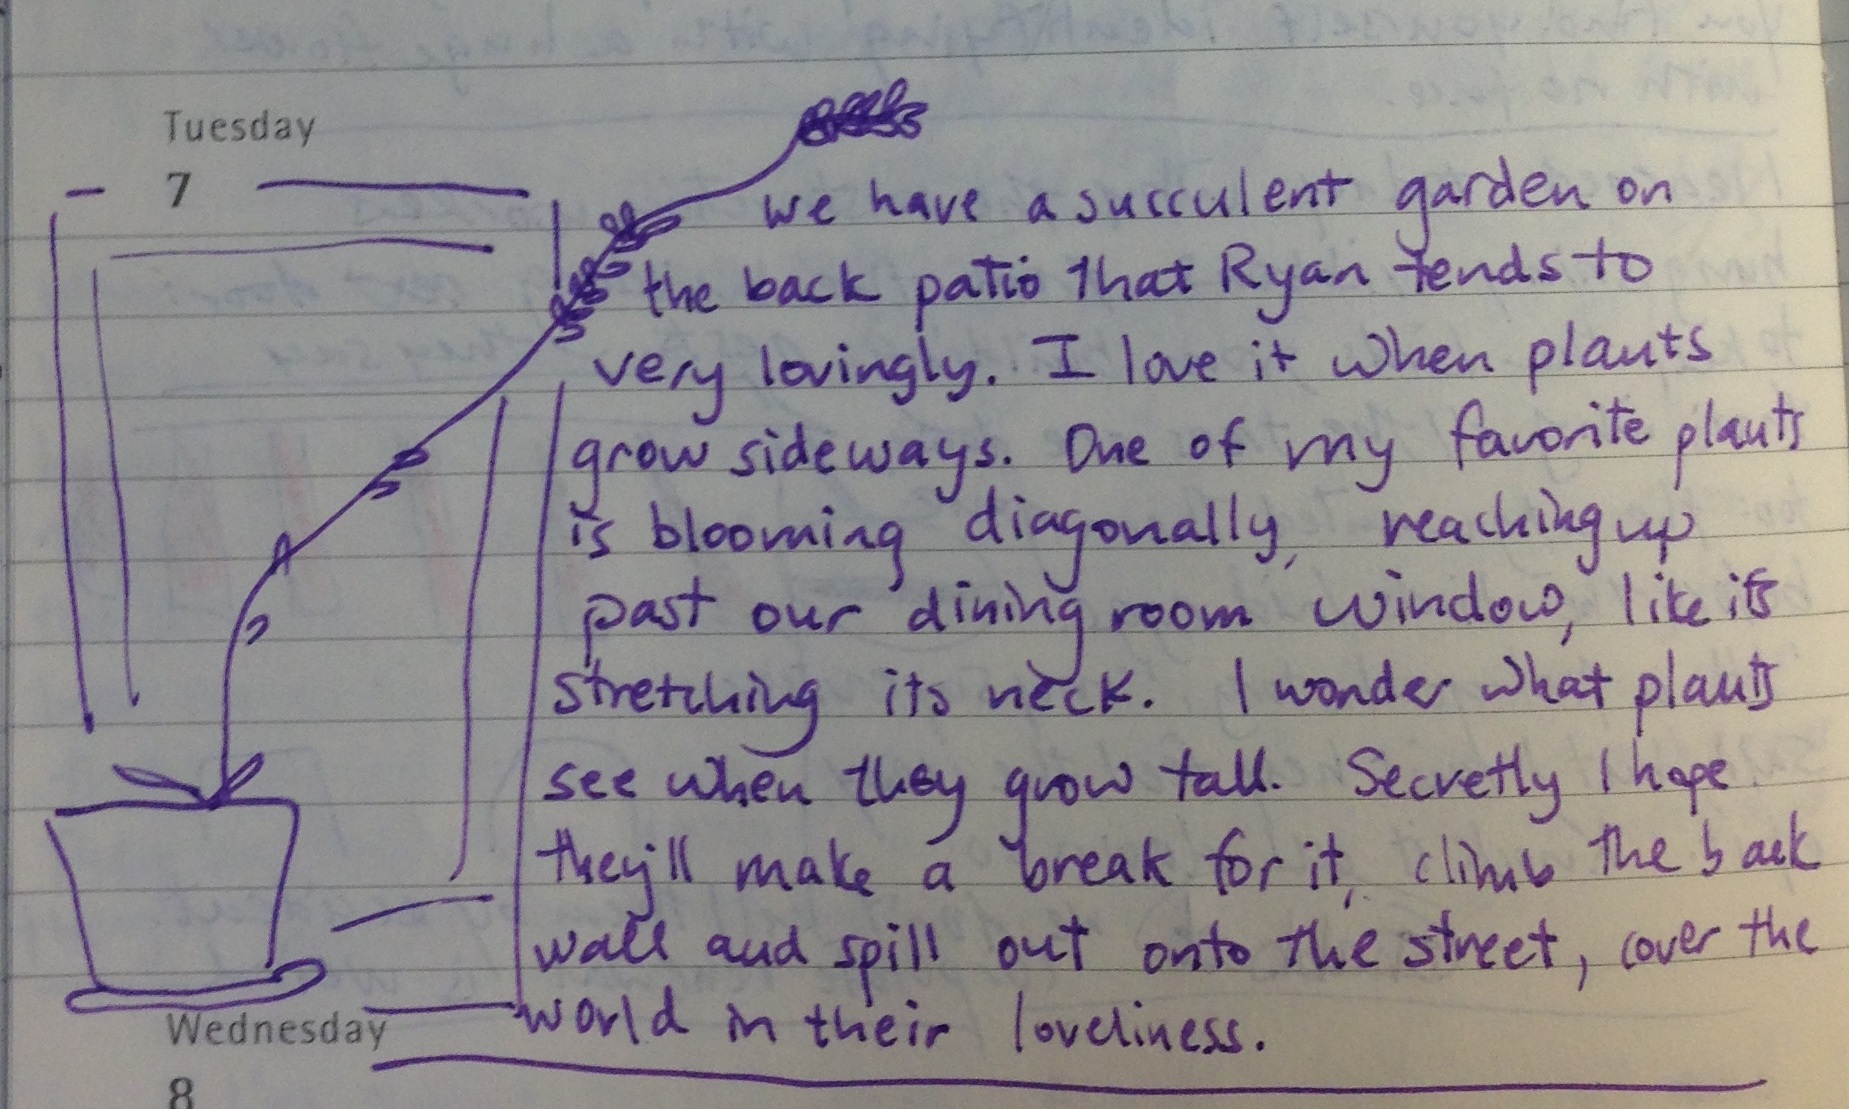 Tuesday
7
we have a succulent garden on
the back patio that Ryan tends to
very lovingly. I love it when plants
grow sideways. One of my favorite plants
is blooming diagonally, reaching up
past our dining room window, like its
stretching its neck. I wonder what plants
see when they grow tall. Secretly I hope
they'll make a break for it, climb the back
wall and spill out onto the street, cover the
world in their loveliness.
Wednesday
8